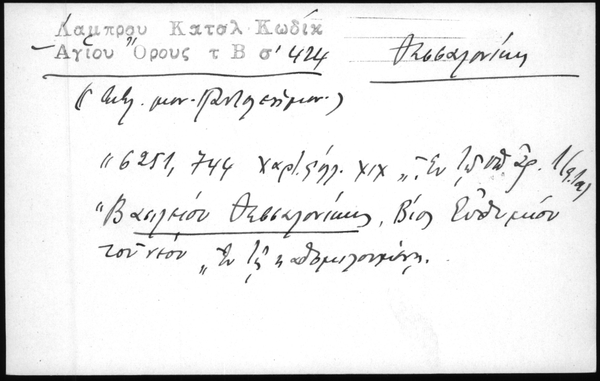 Λαμπρου Κατσλ Κωδίκ
Αγίου Όρους τ Β σ' 424
Θεσσαλονίκης
μον. Παντελεήμον.)
"6251, 744 χαρτ. XIX „Ἐν τῷ ὑπ' ἀρ.
"Βασιλείου Θεσσαλονίκης, Βίος Εὐθυμίου
τοῦ νέου „Ἐν τῇ